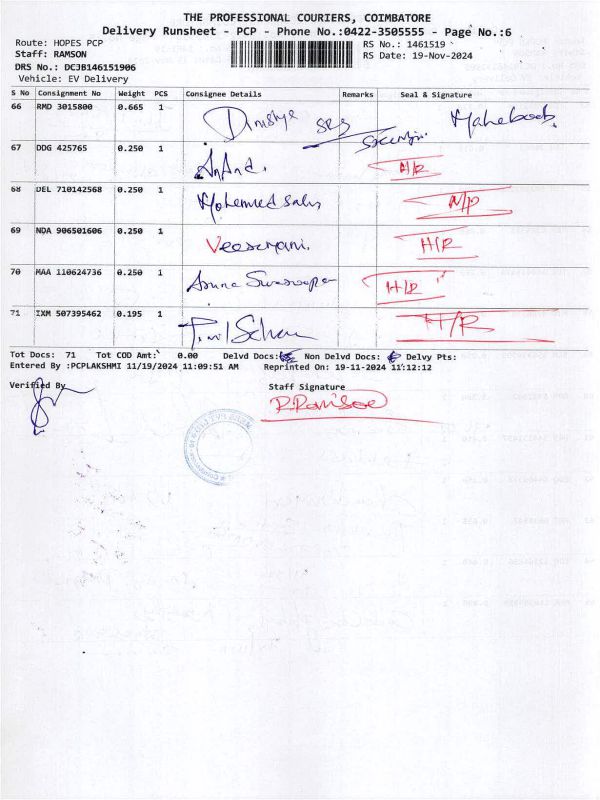 THE PROFESSIONAL COURIERS, COIMBATORE
Delivery Runsheet - PCP - Phone No.:0422-3505555 - Page No.:6
Route: HOPES PCP
RS No.: 1461519
Staff: RAMSON
RS Date: 19-Nov-2024
DRS No.: DCJB146151906
Vehicle: EV Delivery
S No Consignment No Weight PCS Consignee Details Remarks Seal & Signature
66 RMD 3015800 0.665 1 SRS Maheboob
67 DDG 425765 0.250 1 Anand. H/R
68 DEL 710142568 0.250 1 Mohemed N/P
69 NDA 906501606 0.250 1 Veeramani. H/R
70 MAA 110624736 0.250 1 H/R
71 IXM 507395462 0.195 1 H/R
Tot Docs: 71 Tot COD Amt: 0.00 Delvd Docs: Non Delvd Docs: Delvy Pts:
Entered By :PCPLAKSHMI 11/19/2024 11:09:51 AM Reprinted On: 19-11-2024 11:12:12
Verified By Staff Signature